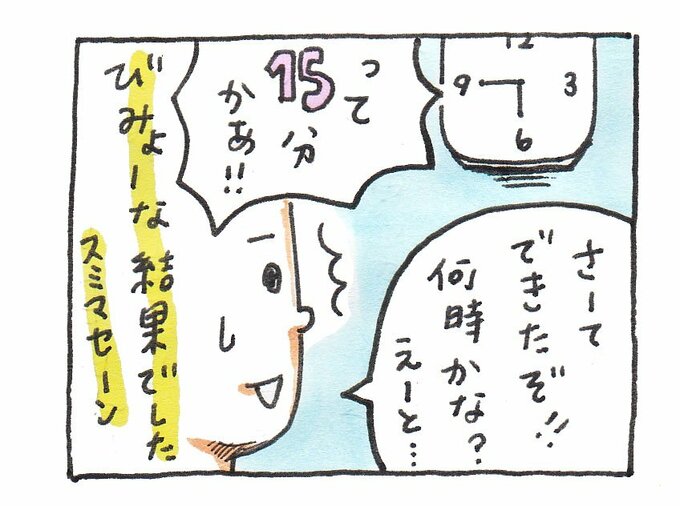 12
9
3
6
さーて
できたぞ!!
何時かな?
えーと…
って
15分
かあ!!
びみょーな結果でした
スミマセーン